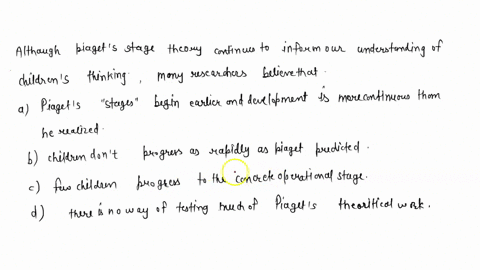 Although piaget's stage theory continues to inform our understanding of
children's thinking, many researchers believe that.
a) Piaget's "stages" begin earlier and development is more continuous than
he realized.
b) children don't progress as rapidly as piaget predicted.
c) few children progress to the concrete operational stage.
d) there is no way of testing much of Piaget's theoritical work.